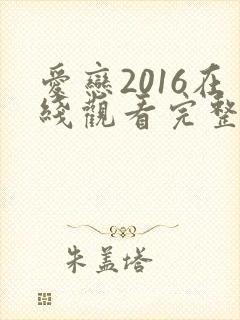 愛戀2016在
綫觀看完整
朱盖塔